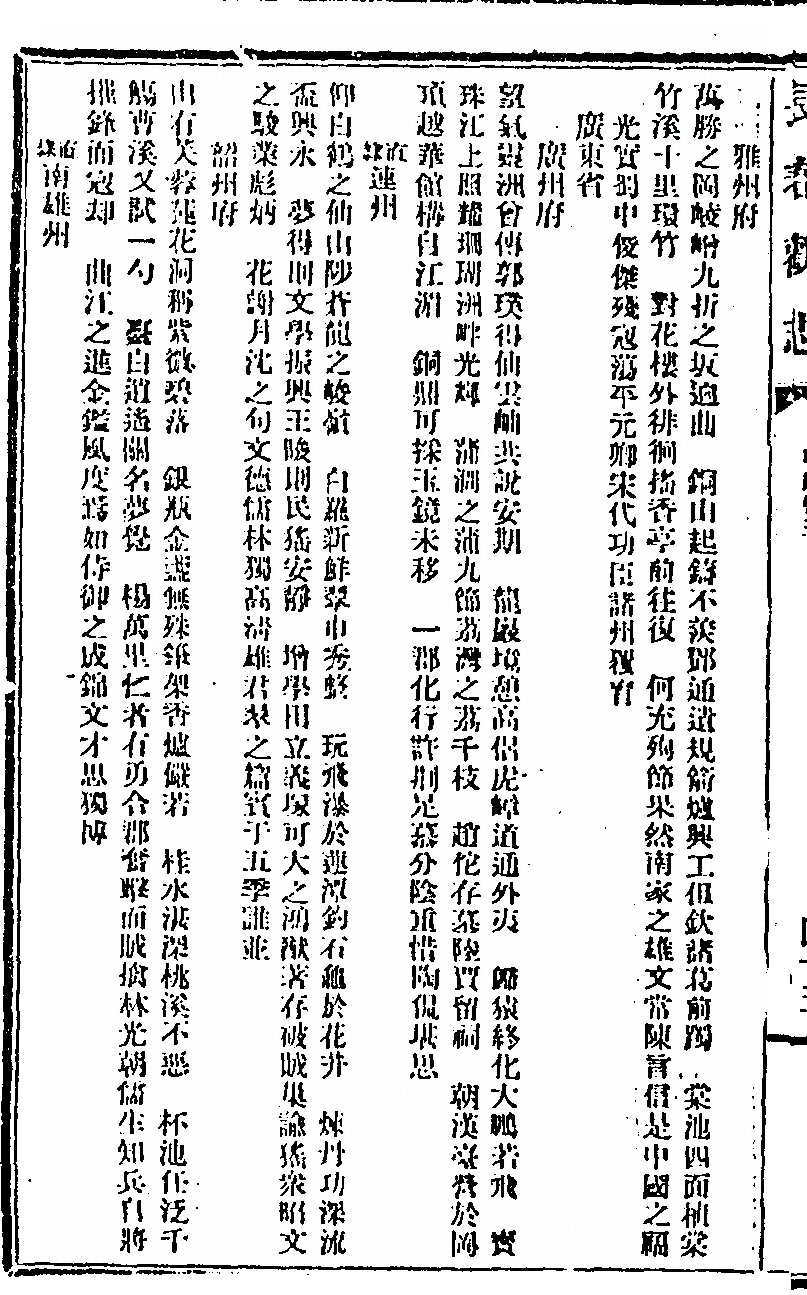 雅州府
萬勝之岡崚嶒九折之坂迤曲　銅山起鑄不羨鄧通遺規箭爐興工但欽諸葛前躅　棠池四面植棠
竹溪十里環竹　對花樓外徘徊搖香亭前往復　何充殉節果然南家之雄文當陳言信是中國之福
光實蜀中俊傑殘寇蕩平元卿宋代功臣諸州獲育
廣東省
廣州府
望氣靈洲曾傳郭璞得仙雲岫共說安期　龍巖境憩高侶虎嶂道通外夷　歸猿終化大鵬若飛　寶
珠江上照耀珊瑚洲畔光輝　蒲澗之蒲九節荔灣之荔千枝　趙佗存墓陸賈留祠　朝漢臺營於岡
頂越華館構自江湄　銅鼎可採玉鏡未移　一郡化行許荆是慕分陰重惜陶侃堪思
直隸連州
仰白鶴之仙山陟蒼龍之峻嶺　白羅新鮮翠巾秀整　玩飛瀑於蓮潭釣石龜於花井　煉丹功深流
盃興永　夢得則文學振興王陵則民猺安靜　增學田立義塚可大之鴻猷著存破賊巢諭猺衆昭文
之駿業彪炳　花謝月沈之句文德儒林獨高清雄君翠之篇賓于五季誰並
韶州府
山有芙蓉蓮花洞稱紫微碧落　銀瓶金盞無殊錐架香爐儼若　桂水湛深桃溪不惡　杯池任泛千
觴曹溪又試一勺　獸自道遙關名夢覺　楊萬里仁者有勇合郡奮興而賊擒林光朝儒生知兵自將
摧鋒而寇却　曲江之進金鑑風度焉如侍御之成錦文才思獨博
直隸南雄州